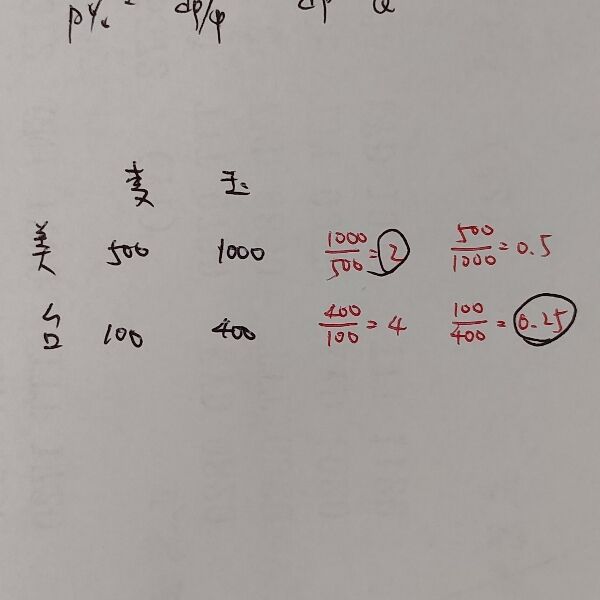 麦 玉
美 500 1000 1000/500=2 500/1000=0.5
台 100 400 400/100=4 100/400=0.25